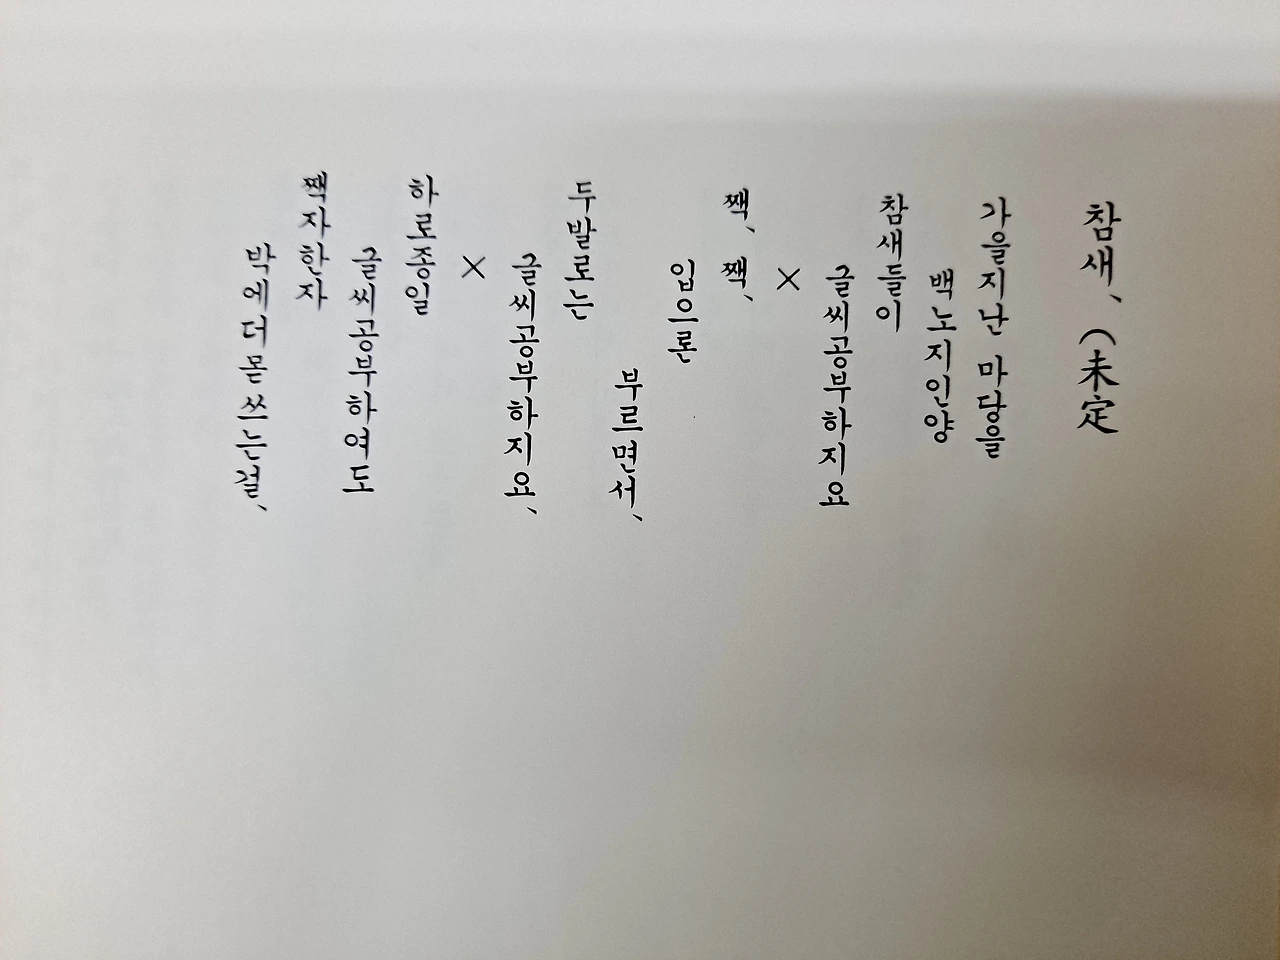 참새、(未定
가을지난 마당을
백노지인양
참새들이
글씨공부하지요
×
짹、짹、
입으론
부르면서、
두발로는
글씨공부하지요、
×
하로종일
글씨공부하여도
짹자한자
박에더몯쓰는걸、